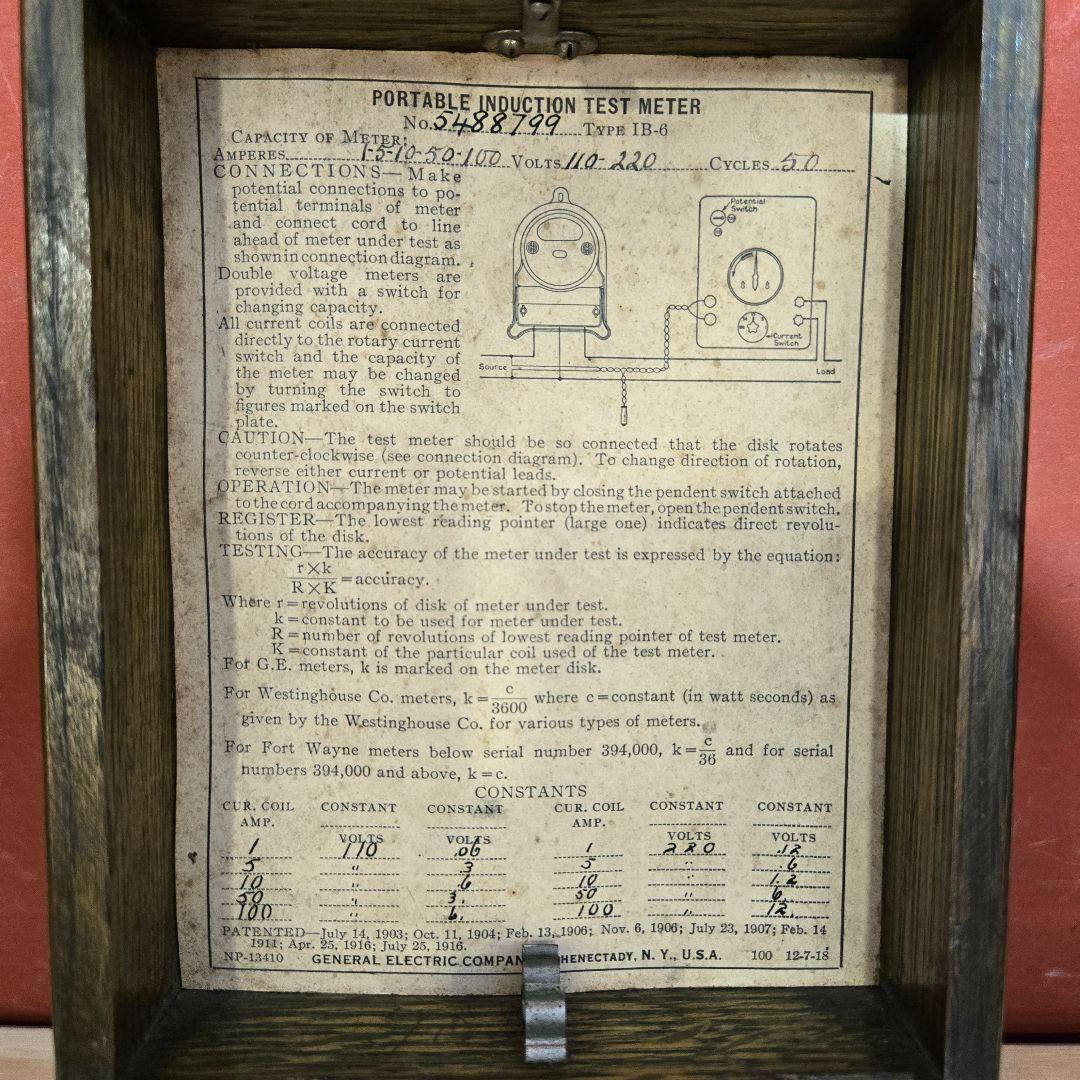 PORTABLE INDUCTION TEST METER
No. 5488799 TYPE IB-6
CAPACITY OF METER:
AMPERES 1-5-10-50-100 VOLTS 110-220 CYCLES 50
CONNECTIONS—Make
potential connections to po-
tential terminals of meter
and connect cord to line
ahead of meter under test as
shown in connection diagram.
Double voltage meters are
provided with a switch for
changing capacity.
All current coils are connected
directly to the rotary current
switch and the capacity of
the meter may be changed
by turning the switch to
figures marked on the switch
plate.
Potential
Switch
Current
Switch
Source
Load
CAUTION—The test meter should be so connected that the disk rotates
counter-clockwise (see connection diagram). To change direction of rotation,
reverse either current or potential leads.
OPERATION—The meter may be started by closing the pendent switch attached
to the cord accompanying the meter. To stop the meter, open the pendent switch.
REGISTER—The lowest reading pointer (large one) indicates direct revolu-
tions of the disk.
TESTING—The accuracy of the meter under test is expressed by the equation:
r×k
R×K =accuracy.
Where r=revolutions of disk of meter under test.
k=constant to be used for meter under test.
R=number of revolutions of lowest reading pointer of test meter.
K=constant of the particular coil used of the test meter.
For G.E. meters, k is marked on the meter disk.
For Westinghouse Co. meters, k=c/3600 where c=constant (in watt seconds) as
given by the Westinghouse Co. for various types of meters.
For Fort Wayne meters below serial number 394,000, k=c/36 and for serial
numbers 394,000 and above, k=c.
CONSTANTS
CUR. COIL CONSTANT CONSTANT CUR. COIL CONSTANT CONSTANT
AMP. AMP.
VOLTS VOLTS VOLTS VOLTS
1 110 .06 1 220 .12
5 " .3 5 " .6
10 " .6 10 " 1.2
50 " 3. 50 " 6.
100 " 6. 100 " 12.
PATENTED—July 14, 1903; Oct. 11, 1904; Feb. 13, 1906; Nov. 6, 1906; July 23, 1907; Feb. 14
1911; Apr. 25, 1916; July 25, 1916.
NP-13410 GENERAL ELECTRIC COMPAN HENECTADY, N. Y., U.S.A. 100 12-7-18